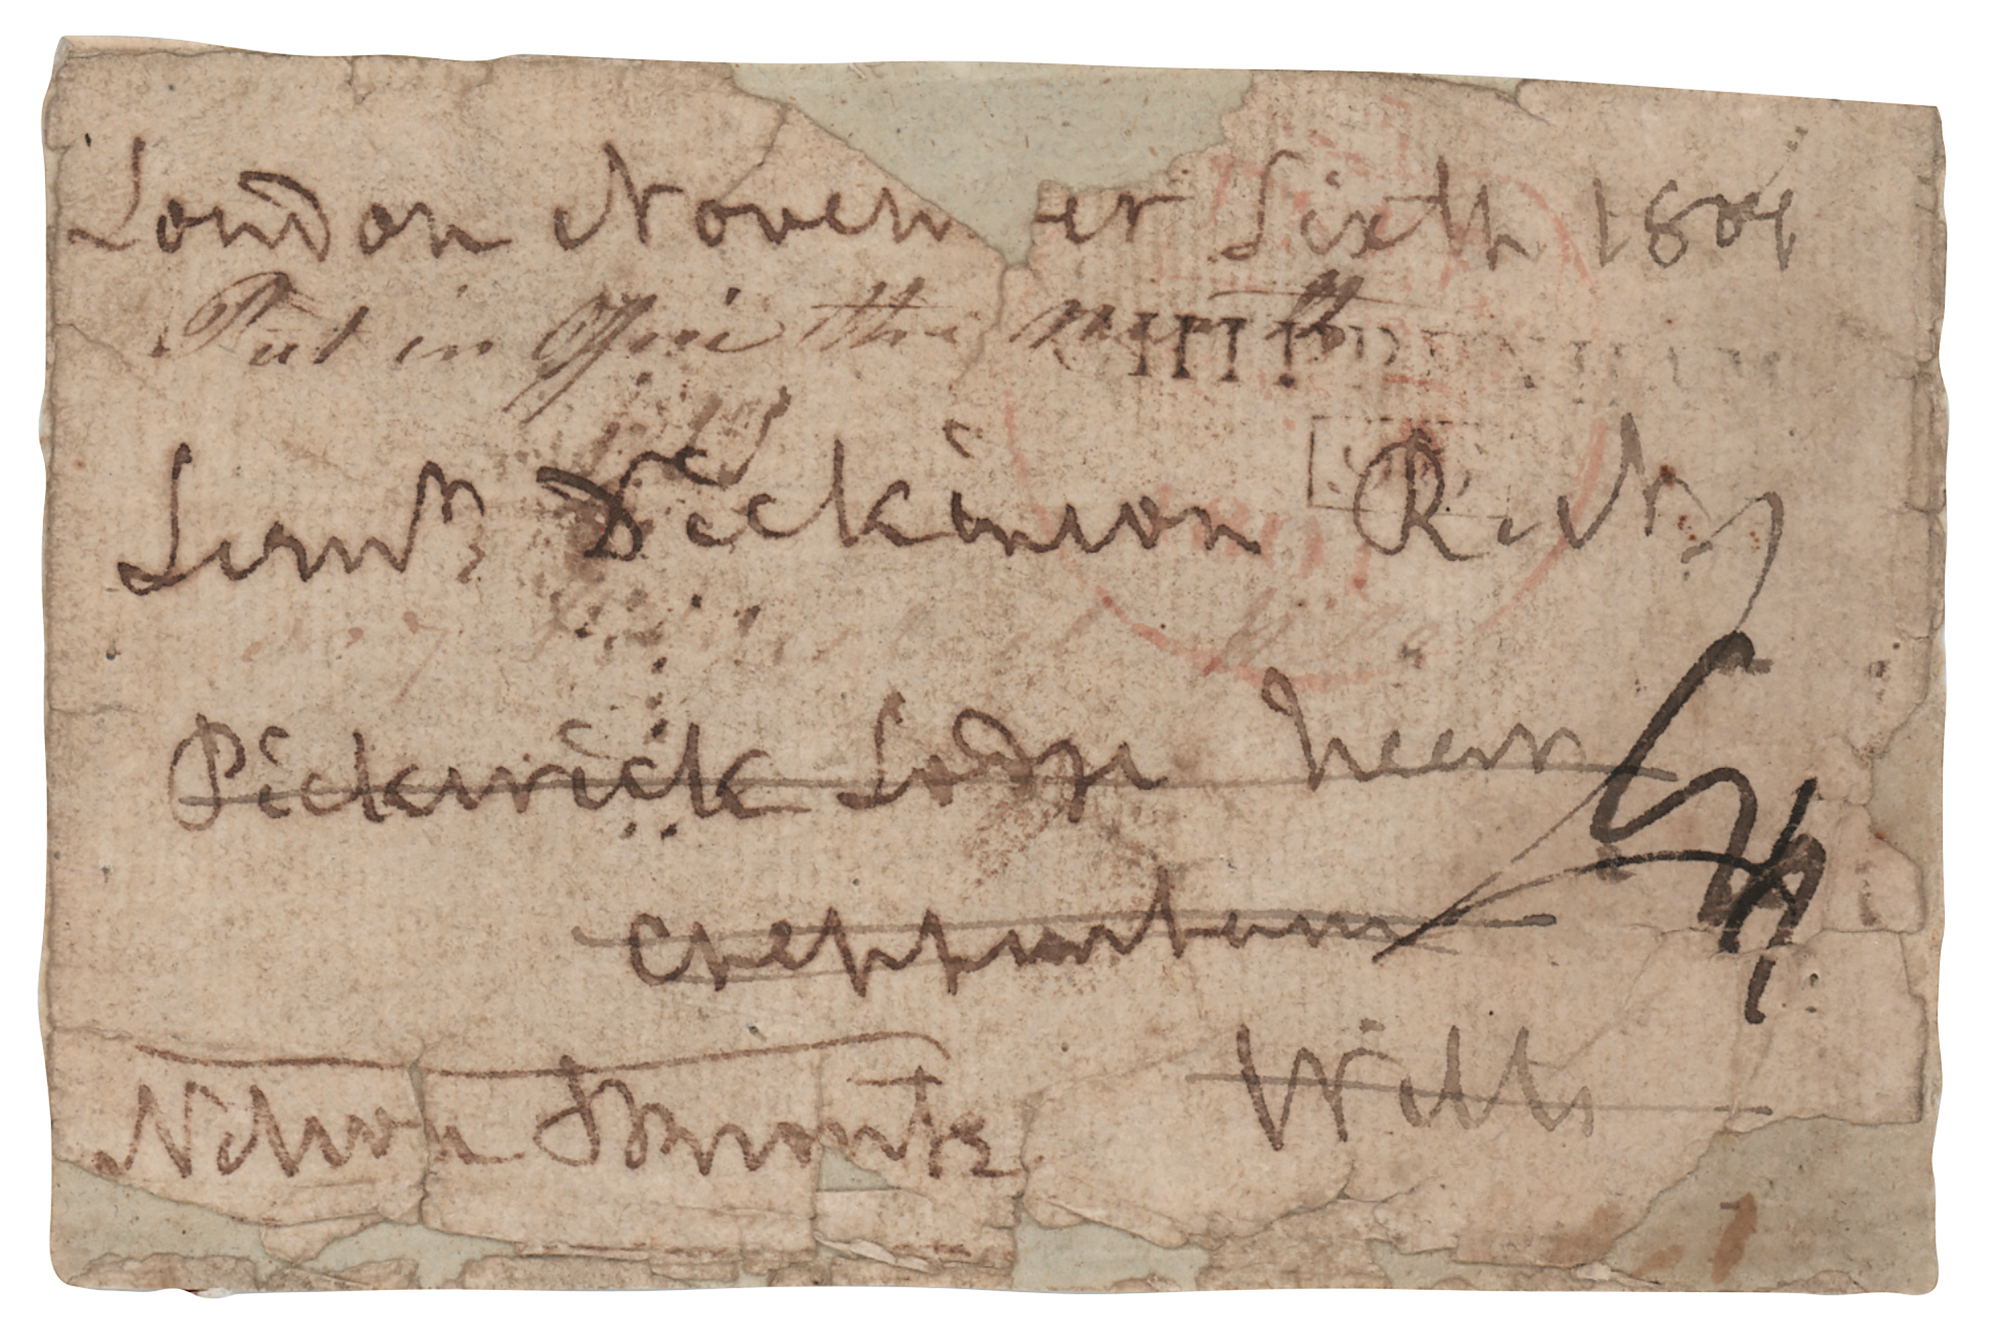 London Novem er Sixth 1801
Put in Office this
Lieut. Dickinson R: N:
Pickwick Lodge near
Cheppenham
Wilts
Nelson & Bronte